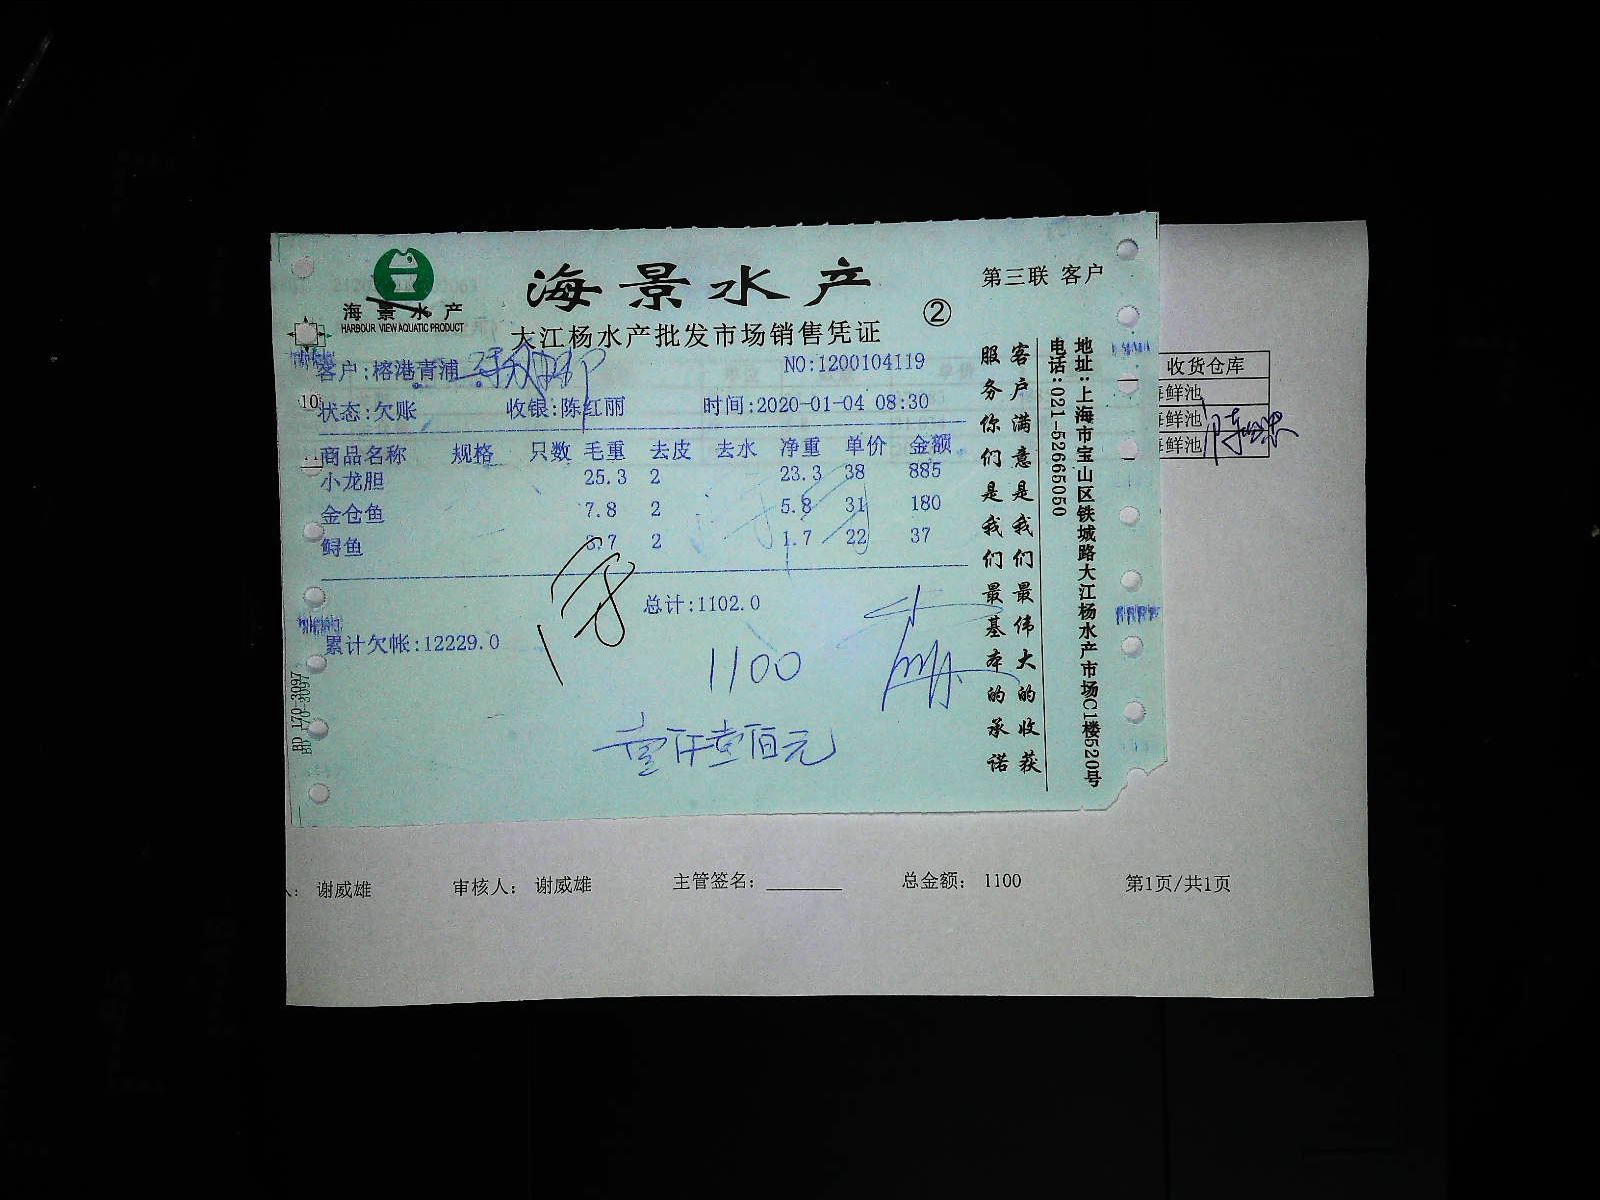 海景水产
HARBOUR VIEW AQUATIC PRODUCT
海景水产
第三联 客户
②
大江杨水产批发市场销售凭证
客户:榕港青浦
NO:1200104119
状态:欠账 收银:陈红丽 时间:2020-01-04 08:30
商品名称 规格 只数 毛重 去皮 去水 净重 单价 金额
小龙胆 25.3 2 23.3 38 885
金仓鱼 7.8 2 5.8 31 180
鲟鱼 3.7 2 1.7 22 37
总计:1102.0
累计欠帐:12229.0
1100
壹仟壹佰元
客户满意是我们最伟大的收获
服务你们是我们最基本的承诺
地址:上海市宝山区铁城路大江杨水产市场C1楼520号
电话:021-52665050
BD 170-3097
收货仓库
海鲜池
海鲜池
海鲜池
谢威雄 审核人: 谢威雄 主管签名: 总金额: 1100 第1页/共1页